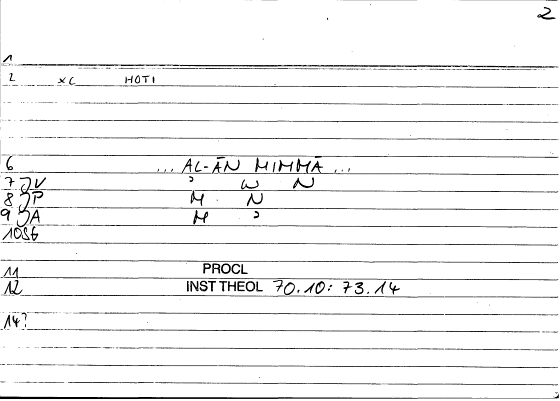 2
1
2 xc HOTI
6 ... AL-ĀN MIMMĀ ...
7 JV ʾ W N
8 JP M N
9 JA M ʾ
10SG
11 PROCL
12 INST THEOL 70.10: 73.14
14?